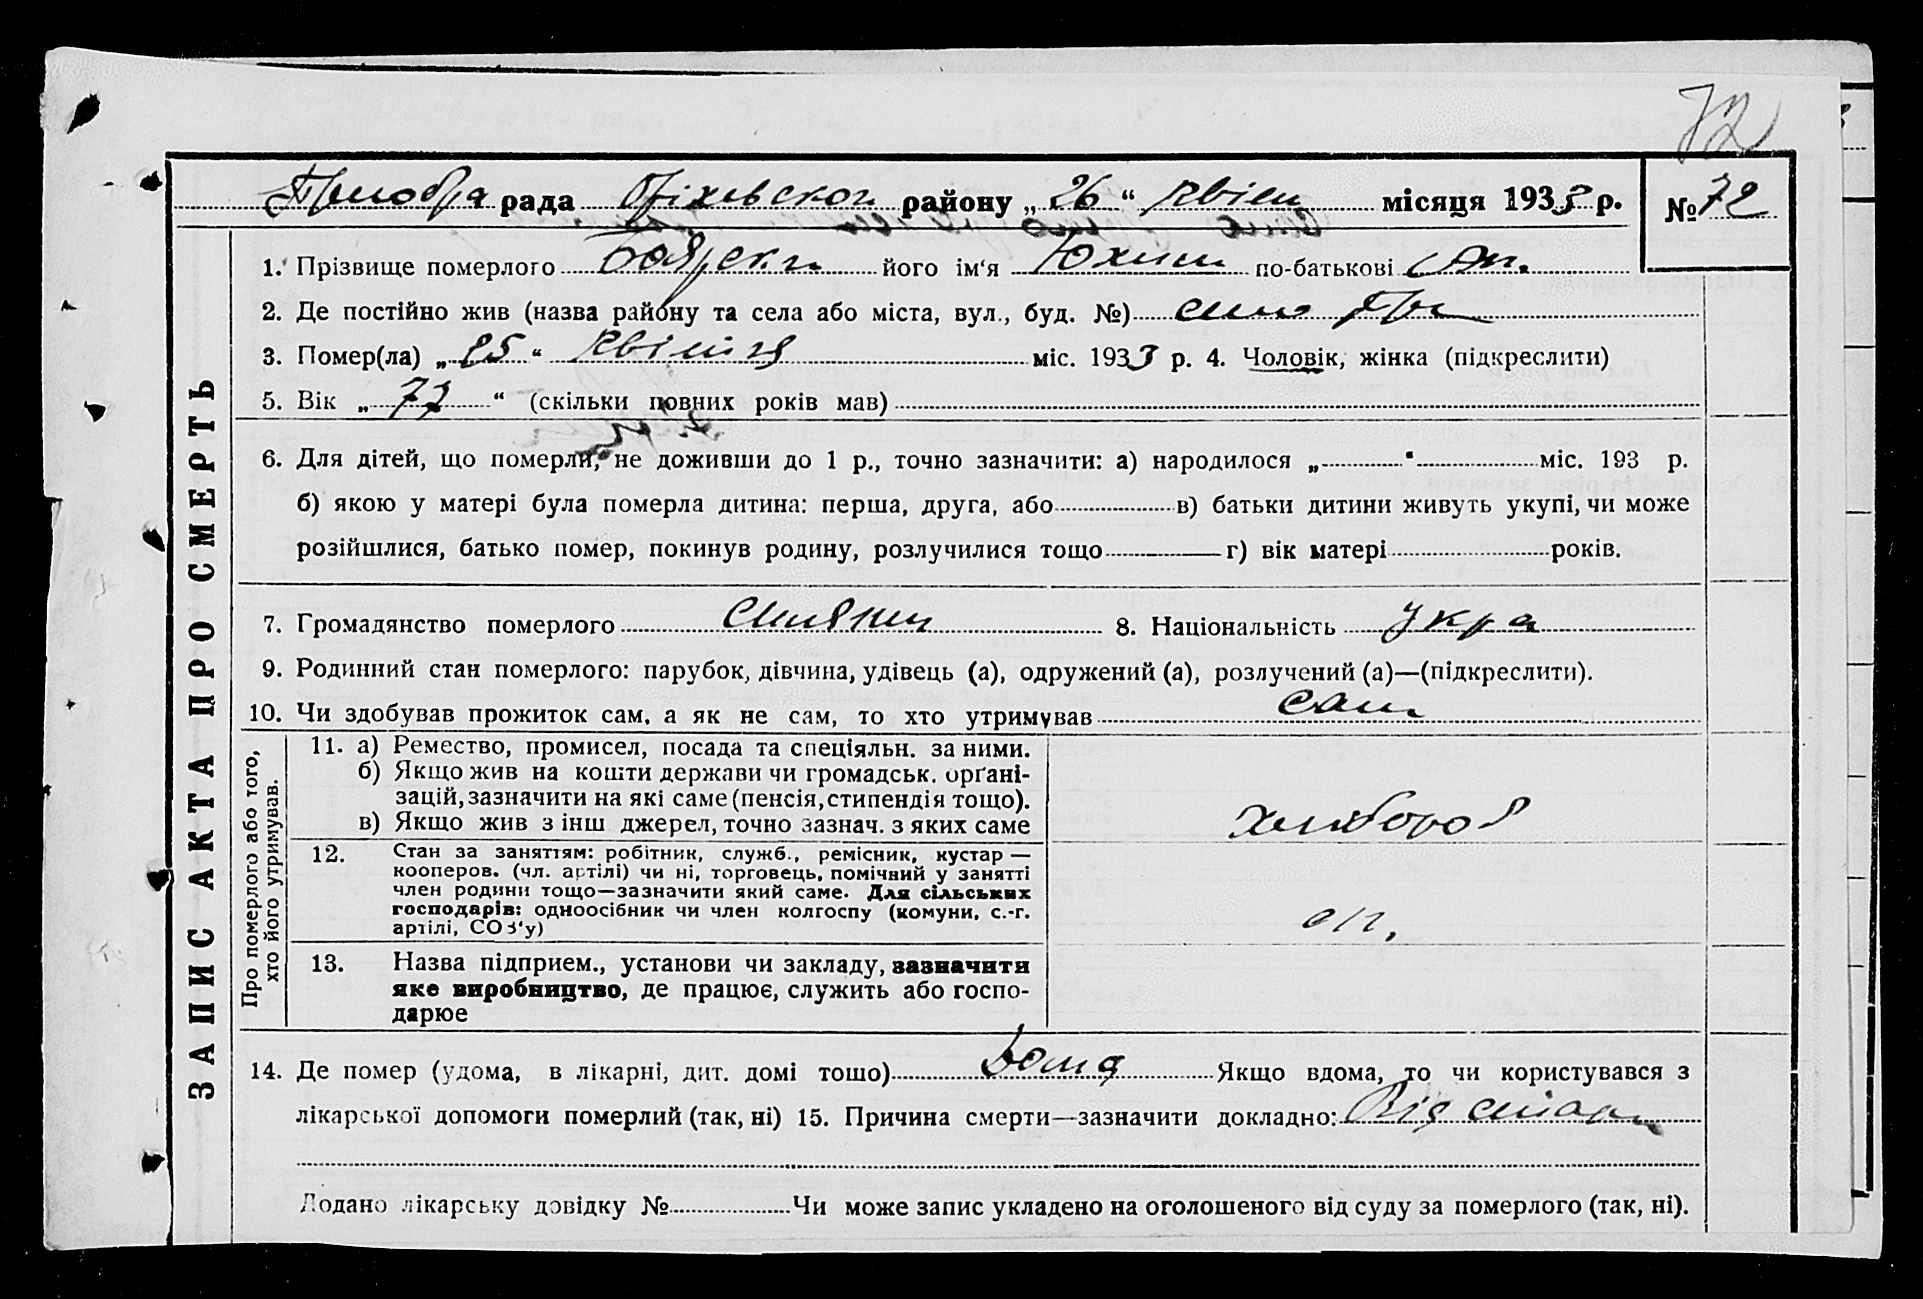 72
рада району „ 26 “ місяця 1933 р. № 72
1. Прізвище померлого Боярски його ім'я Юхим по-батькові
2. Де постійно жив (назва району та села або міста, вул., буд. №) село
3. Помер(ла) „ 25 “ квітня міс. 1933 р. 4. Чоловік, жінка (підкреслити)
5. Вік „ 77 “ (скільки повних років мав)
6. Для дітей, що померли, не доживши до 1 р., точно зазначити: а) народилося „ “ міс. 193 р.
б) якою у матері була померла дитина: перша, друга, або в) батьки дитини живуть укупі, чи може
розійшлися, батько помер, покинув родину, розлучилися тощо г) вік матері років.
7. Громадянство померлого селянин 8. Національність укра
9. Родинний стан померлого: парубок, дівчина, удівець (а), одружений (а), розлучений (а)—(підкреслити).
10. Чи здобував прожиток сам, а як не сам, то хто утримував сам
ЗАПИС АКТА ПРО СМЕРТЬ
Про померлого або того,
хто його утримував.
11. а) Ремество, промисел, посада та спеціяльн. за ними.
б) Якщо жив на кошти держави чи громадськ. орґані-
зацій, зазначити на які саме (пенсія, стипендія тощо).
в) Якщо жив з інш джерел, точно зазнач. з яких саме
хлібороб
12. Стан за заняттям: робітник, служб., ремісник, кустар —
кооперов. (чл. артілі) чи ні, торговець, помічний у занятті
член родини тощо—зазначити який саме. Для сільських
господарів: одноосібник чи член колгоспу (комуни, с.-г.
артілі, СОЗ'у)
13. Назва підприєм., установи чи закладу, зазначити
яке виробництво, де працює, служить або госпо-
дарює
14. Де помер (удома, в лікарні, дит. домі тощо) Дома Якщо вдома, то чи користувався з
лікарської допомоги померлий (так, ні) 15. Причина смерти—зазначити докладно: Від старости
Додано лікарську довідку № Чи може запис укладено на оголошеного від суду за померлого (так, ні).